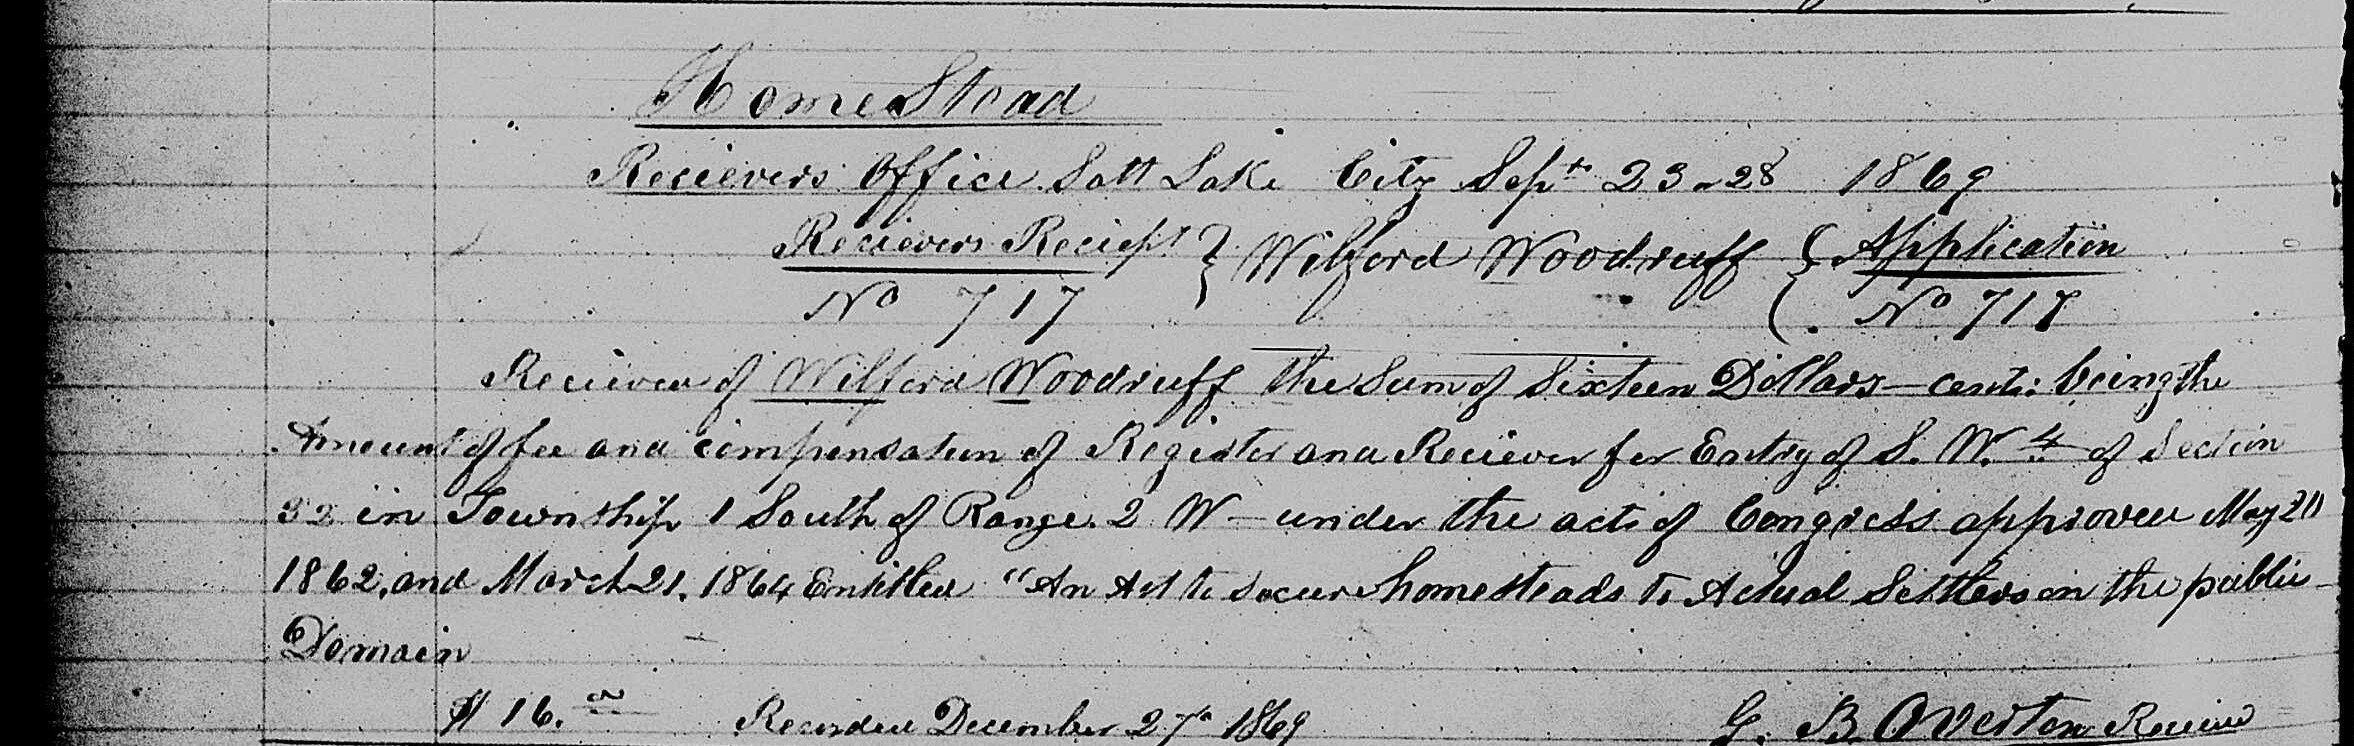 HomeStead
Recievers Office Salt Lake City Sept. 23 - 28 1869
Recievers Reciept } Wilford Woodruff { Application
No 717 No 717
Recieved of Wilford Woodruff the Sum of Sixteen Dollars — cents: being the
Amount of fee and compensation of Register and Reciever for Entry of S. W. 4 of Section
32 in Township 1 South of Range. 2 W — under the acts of Congress approved May 20
1862, and March 21. 1864 Entitled "An Act to secure homesteads to Actual Settlers on the public
Domain
$ 16.00 Recorded December 27th 1869 G. B. Overton Reciever